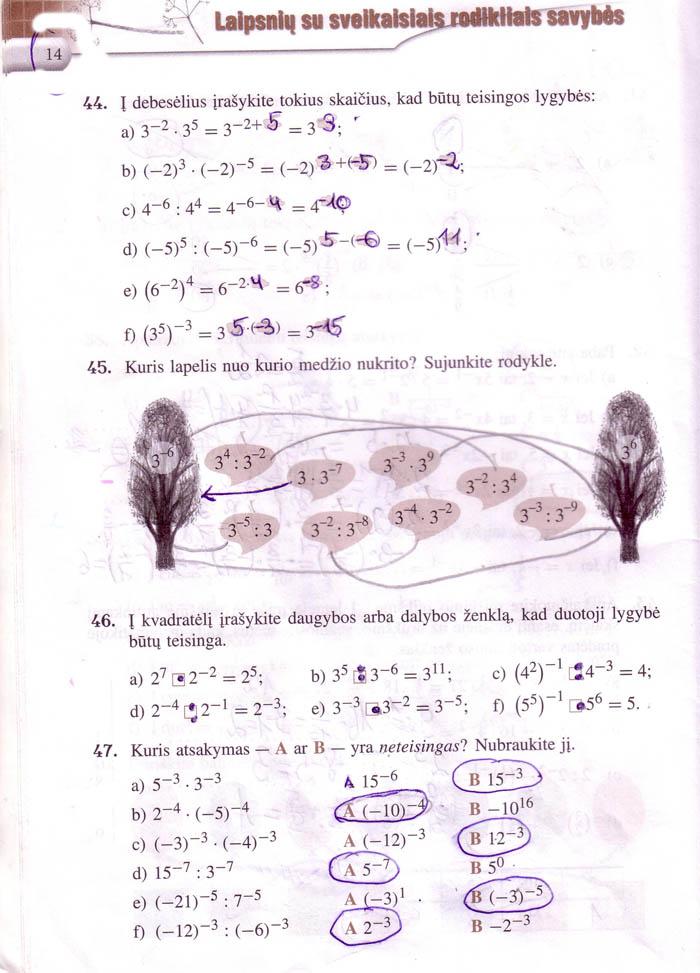 Laipsnių su sveikaisiais rodikliais savybės
14
44. Į debesėlius įrašykite tokius skaičius, kad būtų teisingos lygybės:
a) 3⁻² · 3⁵ = 3⁻²⁺⁵ = 3³;
b) (−2)³ · (−2)⁻⁵ = (−2)³⁺⁽⁻⁵⁾ = (−2)⁻²;
c) 4⁻⁶ : 4⁴ = 4⁻⁶⁻⁴ = 4⁻¹⁰;
d) (−5)⁵ : (−5)⁻⁶ = (−5)⁵⁻⁽⁻⁶⁾ = (−5)¹¹;
e) (6⁻²)⁴ = 6⁻²·⁴ = 6⁻⁸;
f) (3⁵)⁻³ = 3⁵·⁽⁻³⁾ = 3⁻¹⁵
45. Kuris lapelis nuo kurio medžio nukrito? Sujunkite rodykle.
3⁻⁶ 3⁴ : 3⁻² 3 · 3⁻⁷ 3⁻³ · 3⁹ 3⁻² : 3⁴ 3⁶
3⁻⁵ : 3 3⁻² : 3⁻⁸ 3⁻⁴ · 3⁻² 3⁻³ : 3⁻⁹
46. Į kvadratėlį įrašykite daugybos arba dalybos ženklą, kad duotoji lygybė
būtų teisinga.
a) 2⁷ · 2⁻² = 2⁵; b) 3⁵ : 3⁻⁶ = 3¹¹; c) (4²)⁻¹ : 4⁻³ = 4;
d) 2⁻⁴ : 2⁻¹ = 2⁻³; e) 3⁻³ · 3⁻² = 3⁻⁵; f) (5⁵)⁻¹ · 5⁶ = 5.
47. Kuris atsakymas — A ar B — yra neteisingas? Nubraukite jį.
a) 5⁻³ · 3⁻³ A 15⁻⁶ B 15⁻³
b) 2⁻⁴ · (−5)⁻⁴ A (−10)⁻⁴ B −10¹⁶
c) (−3)⁻³ · (−4)⁻³ A (−12)⁻³ B 12⁻³
d) 15⁻⁷ : 3⁻⁷ A 5⁻⁷ B 5⁰
e) (−21)⁻⁵ : 7⁻⁵ A (−3)¹ B (−3)⁻⁵
f) (−12)⁻³ : (−6)⁻³ A 2⁻³ B −2⁻³